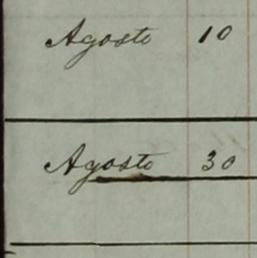 Agosto 10
Agosto 30